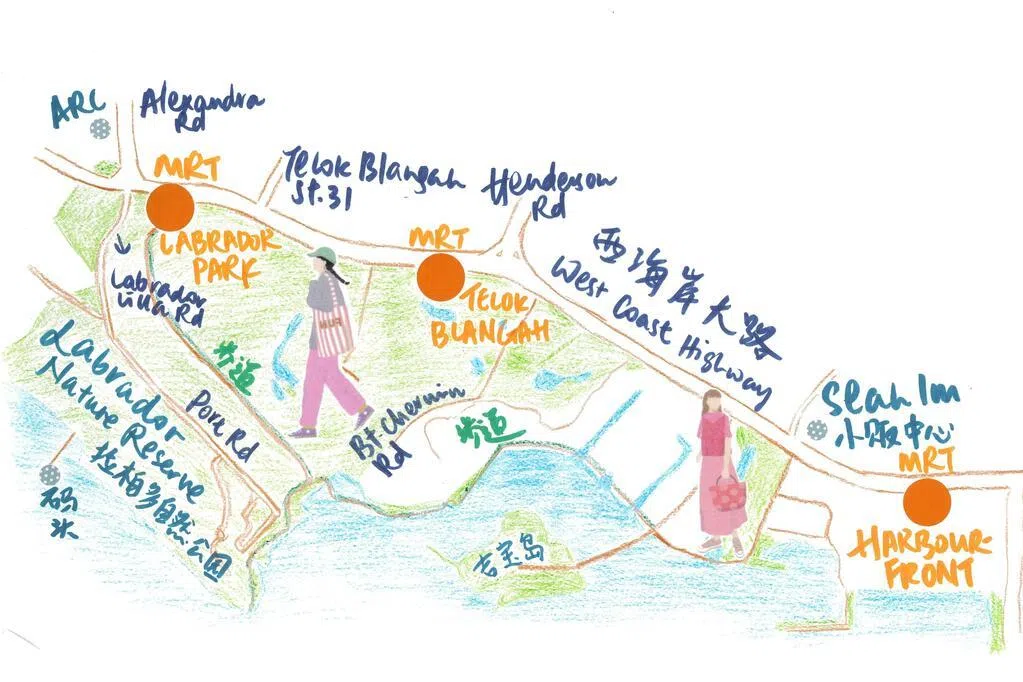 ARC
Alexandra
Rd
MRT
LABRADOR
PARK
Telok Blangah
St.31
Henderson
Rd
MRT
TELOK
BLANGAH
西海岸大路
West Coast Highway
Labrador
Villa Rd
步道
Port Rd
Bt. Chermin
Rd
步道
Labrador
Nature Reserve
拉柏多自然公园
码头
吉宝岛
Seah Im
小贩中心
MRT
HARBOUR-
FRONT